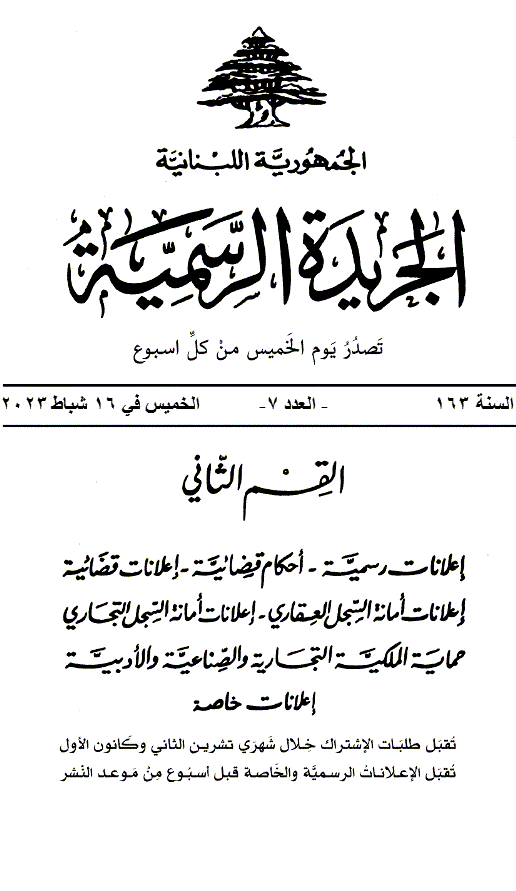 الجمهوريَّة اللبنانيَّة
الجَريدة الرسَّميَّة
تَصدُرُ يَوم الخَميس منْ كلِّ اسبوع
السنة ١٦٣ - العدد ٧- الخميس في ١٦ شباط ٢٠٢٣
القِسْم الثَّاني
إعلانات رسميَّة - أحكام قضائيَّة - إعلانات قضائية
إعلانات أمانة السِّجل العقاري - إعلانات أمانة السِّجل التجاري
حماية الملكيَّة التجارية والصِّناعيَّة والأدبيَّة
إعلانات خاصة
تُقبَل طلبَات الإشتراك خِلال شَهرَي تشرين الثاني وكَانون الأول
تُقبَل الإعلاناتُ الرسميَّة والخَاصة قبل أسبُوع مِنْ مَوعد النَشر